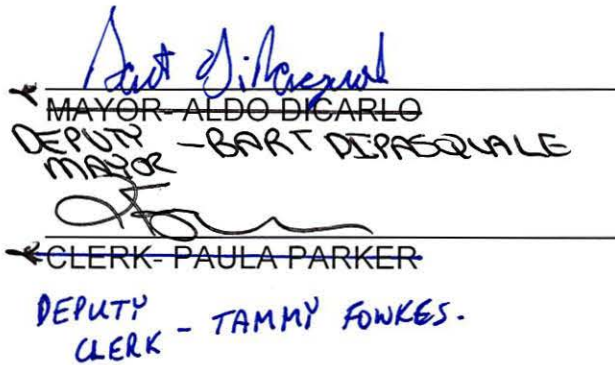 Bart DiPasquale
MAYOR- ALDO DICARLO
DEPUTY - BART DIPASQUALE
MAYOR
CLERK- PAULA PARKER
DEPUTY
CLERK - TAMMY FOWKES.